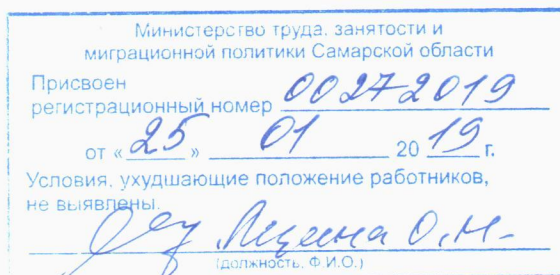 Министерство труда, занятости и
миграционной политики Самарской области
Присвоен
регистрационный номер 00272019
от «25» 01 2019 г.
Условия, ухудшающие положение работников,
не выявлены.
О.Н.
(должность, Ф.И.О.)